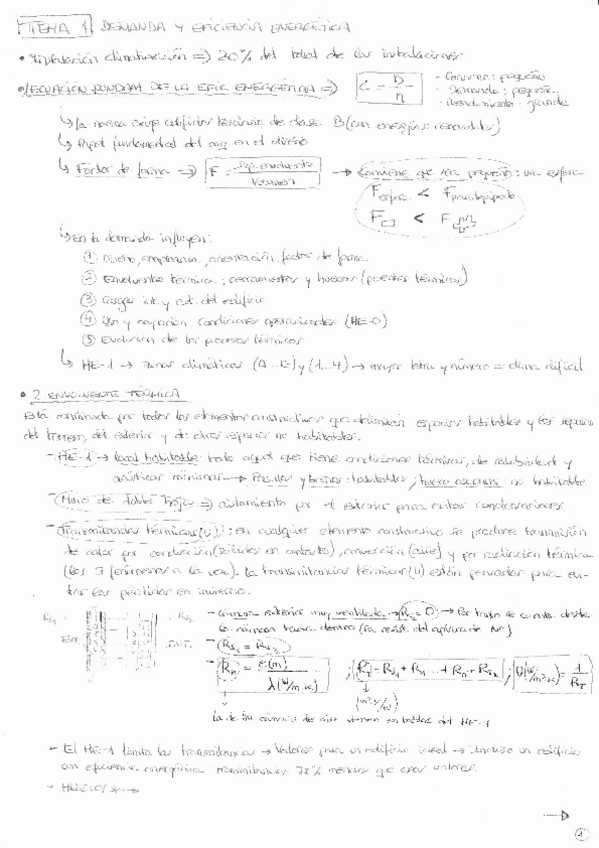 TEMA 1 DEMANDA Y EFICIENCIA ENERGÉTICA
• climatización => 30% del total de las instalaciones
• ECUACIÓN FUNDAM. DE LA EFIC. ENERGÉTICA => C = D / η - Consumo: pequeño
- Demanda: pequeña
- Rendimiento: grande
↳ La norma exige edificios término de clase B (con energías renovables)
↳ Papel fundamental del arq. en el diseño
↳ Factor de forma => F = Sup. envolvente / Volumen → Conviene que sea pequeño: una esfera
F esfera < F paralelepípedo
F < F
↳ En la demanda influyen:
① orientación, factor de forma
② Envolvente térmica: cerramientos y huecos (puentes térmicos)
③ Cargas int. y ext. del edificio
④ Uso y ocupación. Condiciones operacionales (HE-0)
⑤ Evolución de los procesos térmicos
↳ HE-1 → Zonas climáticas (A...E) y (1...4) → mayor letra y número = clima difícil
• 2 ENVOLVENTE TÉRMICA
Está constituida por todos los elementos constructivos que delimitan espacios habitables y los separan
del terreno, del exterior y de otros espacios no habitables.
- HE-1 → local habitable: todo aquel que tiene condiciones térmicas, de salubridad y
acústicas mínimas → Pasillos y habitables; hueco ascensor no habitable
- Muro de => aislamiento por el exterior para evitar condensaciones
- Transmitancias térmicas (U): en cualquier elemento constructivo se produce transmisión
de calor por conducción (sólidos en contacto), convección (aire) y por radiación térmica
(los 3 fenómenos a la vez). La transmitancias térmicas (U) están pensadas para
las pérdidas en invierno.
EXT. INT. - Cámara exterior muy ventilada → = 0 → Por tanto se cuenta desde
la cámara hacia dentro
- Rn = e(m) / λ(W/m·K) ; RT = Rs1 + R1 ... + Rn + Rs2 ; U(W/m²·K) = 1 / RT
(m²·K/W)
cámaras de aire vienen en tablas del HE-1
- El HE-1 limita las transmitancias → Valores para un edificio ideal → edificio
con eficiencia energética transmitancias % menores que esos valores.
- HUECOS →
1